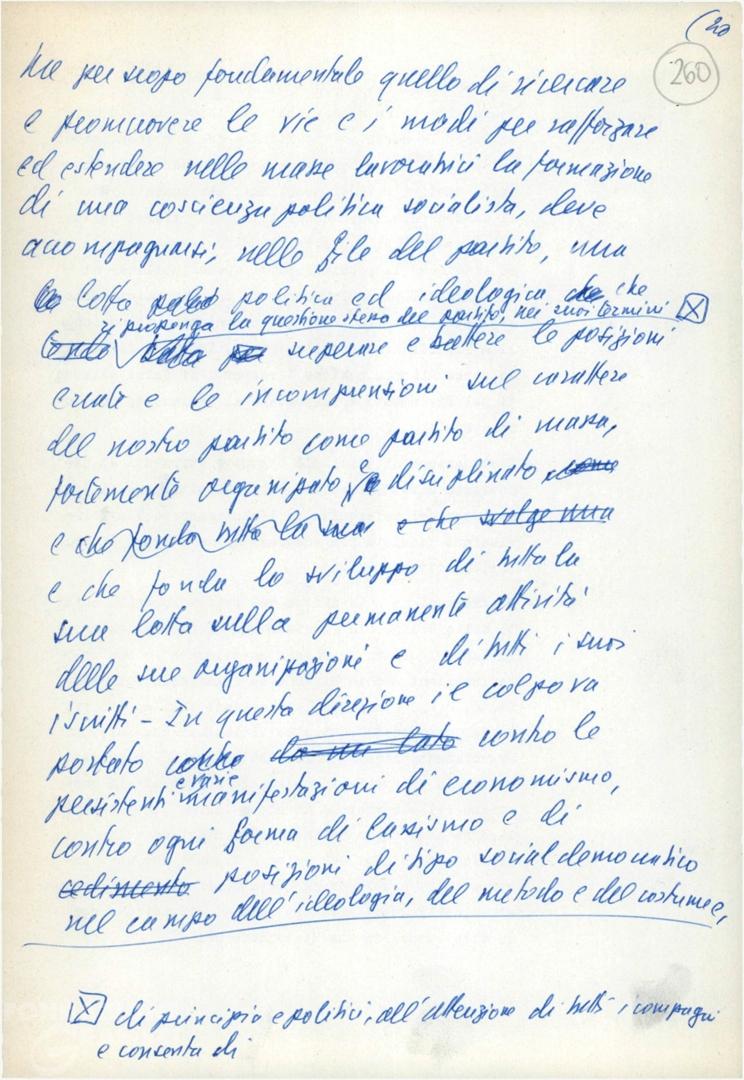 (20
260
ha per scopo fondamentale quello di ricercare
e promuovere le vie e i modi per rafforzare
ed estendere nelle masse lavoratrici la formazione
di una coscienza politica socialista, deve
accompagnarsi, nelle file del partito, una
la lotta politica ed ideologica che che
si proponga la questione stessa del partito, nei suoi termini [X]
superare e battere le posizioni
errate e le incomprensioni sul carattere
del nostro partito come partito di massa,
fortemente organizzato e disciplinato come
e che fonda tutta la sua e che svolge una
e che fonda lo sviluppo di tutta la
sua lotta sulla permanente attività
delle sue organizzazioni e di tutti i suoi
iscritti - In questa direzione il colpo va
portato contro da un lato contro le
e varie
persistenti manifestazioni di economismo,
contro ogni forma di lassismo e di
cedimento posizioni di tipo socialdemocratico
nel campo dell'ideologia, del metodo e del costume,
[X] di principio e politici, all'attenzione di tutti i compagni
e consenta di